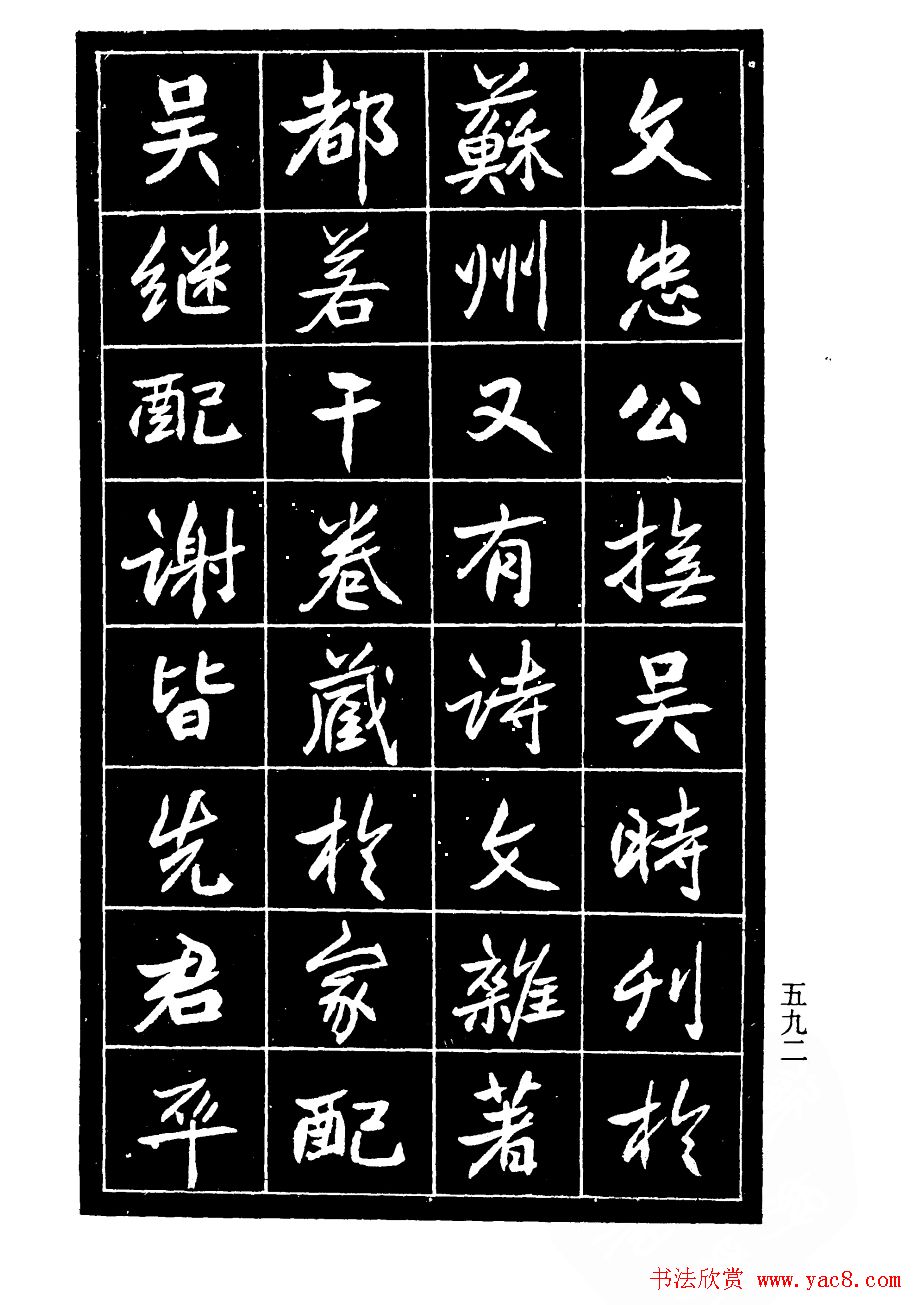 文忠公撫吴時刊於
蘇州又有诗文雜著
都若干卷藏於家配
吴继配谢皆先君卒
五九二
书法欣赏 www.yac8.com